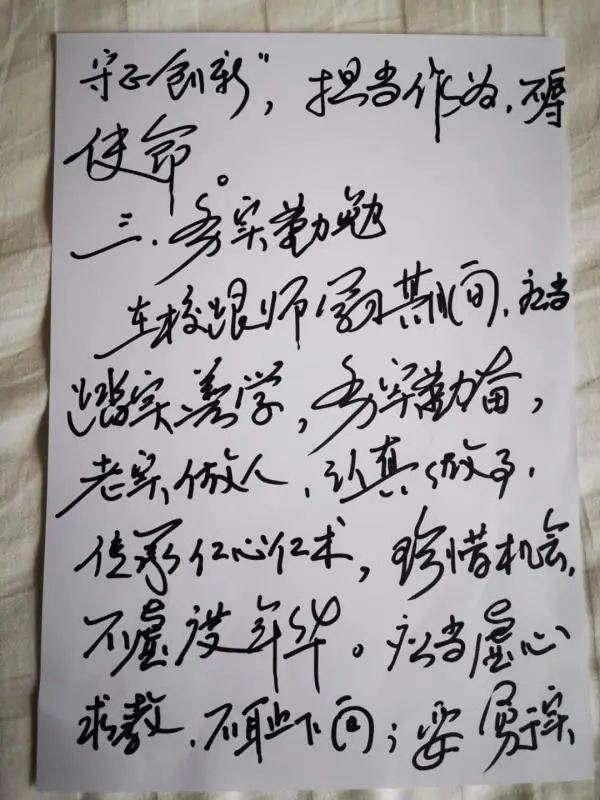 守正创新”，担当作为，不辱
使命。
三、务实勤勉
在校跟师学习期间，应当
踏实善学，务实勤奋，
老实做人，认真做事，
传承仁心仁术，珍惜机会，
不虚度年华。应当虚心
求教，不耻下问；要勇于实